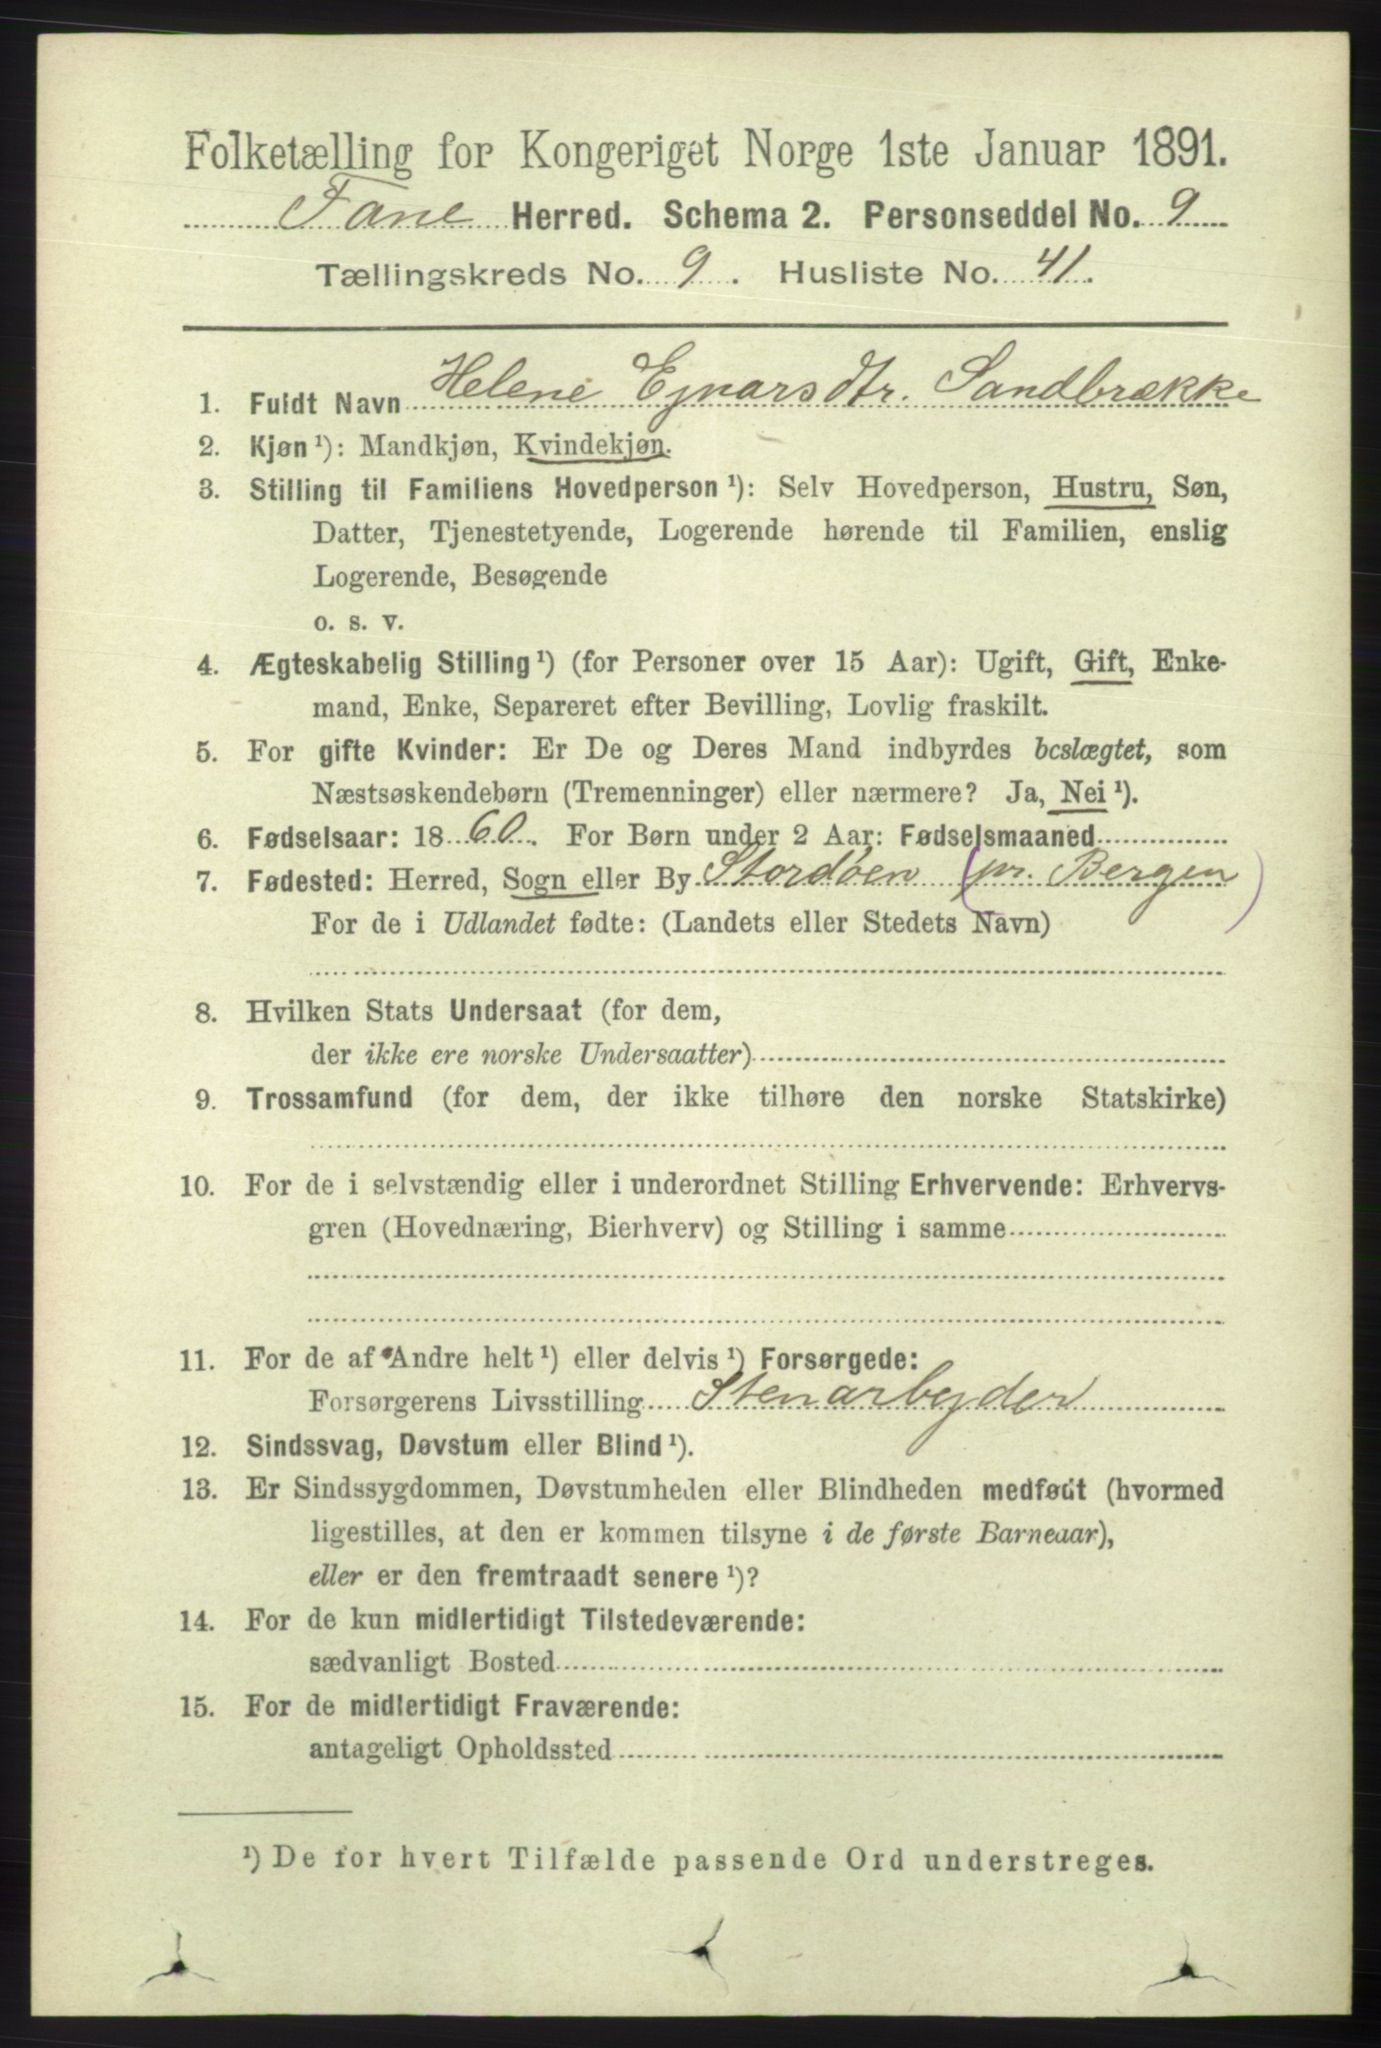 Folketælling for Kongeriget Norge 1ste Januar 1891.
Fane Herred. Schema 2. Personseddel No. 9
Tællingskreds No. 9. Husliste No. 41.
1. Fuldt Navn Helene Ejnarsdtr. Sandbrække
2. Kjøn ¹): Mandkjøn, Kvindekjøn.
3. Stilling til Familiens Hovedperson ¹): Selv Hovedperson, Hustru, Søn,
Datter, Tjenestetyende, Logerende hørende til Familien, enslig
Logerende, Besøgende
o. s. v.
4. Ægteskabelig Stilling ¹) (for Personer over 15 Aar): Ugift, Gift, Enke-
mand, Enke, Separeret efter Bevilling, Lovlig fraskilt.
5. For gifte Kvinder: Er De og Deres Mand indbyrdes beslægtet, som
Næstsøskendebørn (Tremenninger) eller nærmere? Ja, Nei ¹).
6. Fødselsaar: 1860. For Børn under 2 Aar: Fødselsmaaned
7. Fødested: Herred, Sogn eller By Stordøen (pr. Bergen)
For de i Udlandet fødte: (Landets eller Stedets Navn)
8. Hvilken Stats Undersaat (for dem,
der ikke ere norske Undersaatter)
9. Trossamfund (for dem, der ikke tilhøre den norske Statskirke)
10. For de i selvstændig eller i underordnet Stilling Erhvervende: Erhvervs-
gren (Hovednæring, Bierhverv) og Stilling i samme
11. For de af Andre helt ¹) eller delvis ¹) Forsørgede:
Forsørgerens Livsstilling Stenarbejder
12. Sindssvag, Døvstum eller Blind ¹).
13. Er Sindssygdommen, Døvstumheden eller Blindheden medfødt (hvormed
ligestilles, at den er kommen tilsyne i de første Barneaar),
eller er den fremtraadt senere ¹)?
14. For de kun midlertidigt Tilstedeværende:
sædvanligt Bosted
15. For de midlertidigt Fraværende:
antageligt Opholdssted
¹) De for hvert Tilfælde passende Ord understreges.